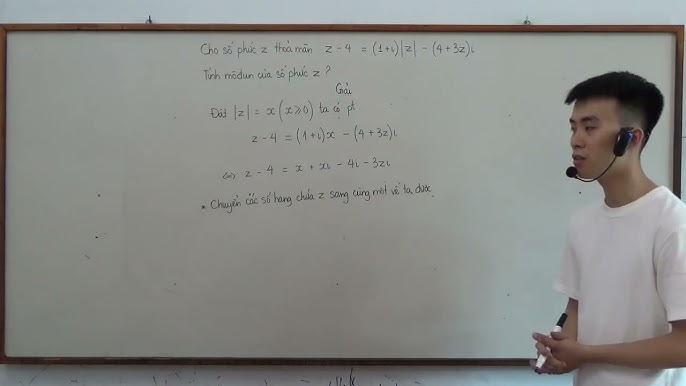 Cho số phức z thoả mãn z - 4 = (1+i)|z| - (4+3z)i
Tính môđun của số phức z ?
Giải
Đặt |z| = x (x≥0) ta có pt
z - 4 = (1+i)x - (4+3z)i
⇔ z - 4 = x + xi - 4i - 3zi
* Chuyển các số hạng chứa z sang cùng một vế ta được